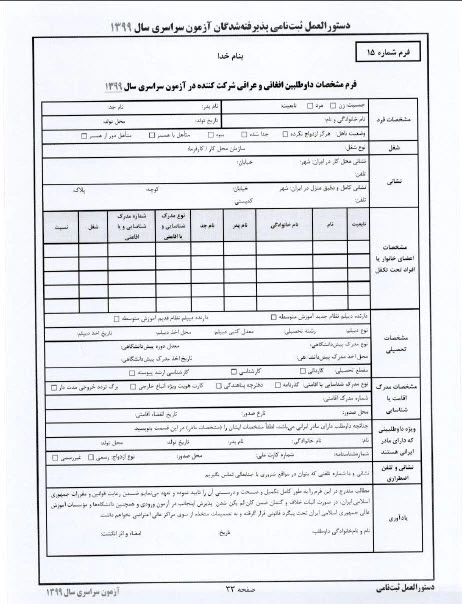 دستورالعمل ثبت‌نامی پذیرفته‌شدگان آزمون سراسری سال ۱۳۹۹
فرم شماره ۱۵
بنام خدا
فرم مشخصات داوطلبین افغانی و عراقی شرکت کننده در آزمون سراسری سال ۱۳۹۹
مشخصات فرد
جنسیت: زن □ مرد □ تابعیت: نام پدر: نام جد:
نام خانوادگی و نام: تاریخ تولد: محل تولد:
وضعیت تاهل: هرگز ازدواج نکرده □ جدا شده □ بیوه □ متأهل با همسر □ متأهل دور از همسر □
شغل
نوع شغل: سازمان محل کار / کارفرما:
نشانی
نشانی محل کار در ایران: شهر: خیابان:
تلفن:
نشانی کامل و دقیق منزل در ایران: شهر: خیابان: کوچه: پلاک:
تلفن: کدپستی
مشخصات اعضای خانوار یا افراد تحت تکفل
تابعیت نام نام خانوادگی نام پدر نام جد نوع مدرک شناسایی و یا اقامتی شماره مدرک شناسایی و یا اقامتی شغل نسبت
مشخصات تحصیلی
دارنده دیپلم نظام جدید آموزش متوسطه □ دارنده دیپلم نظام قدیم آموزش متوسطه □
نوع دیپلم: رشته تحصیلی: معدل کتبی دیپلم: محل اخذ دیپلم: تاریخ اخذ دیپلم:
نوع مدرک پیش‌دانشگاهی: معدل دوره پیش‌دانشگاهی:
محل اخذ مدرک پیش‌دانشگاهی: تاریخ اخذ مدرک پیش‌دانشگاهی:
مقطع تحصیلی: کاردانی □ کارشناسی □ کارشناسی ارشد پیوسته □
مشخصات مدرک اقامت یا شناسایی
نوع مدرک شناسایی یا اقامتی: گذرنامه □ دفترچه پناهندگی □ کارت هویت ویژه اتباع خارجی □ برگ تردد خروجی مدت دار □
شماره مدرک اقامتی:
محل صدور: تاریخ صدور: تاریخ انقضاء اقامتی:
ویژه داوطلبینی که دارای مادر ایرانی هستند
چنانچه داوطلب دارای مادر ایرانی می‌باشد، لطفاً مشخصات ایشان را (مشخصات مادر) در این قسمت بنویسید.
نام: نام خانوادگی: نام پدر: تاریخ تولد: محل تولد:
شماره شناسنامه: شماره کارت ملی: محل صدور: نوع ازدواج: رسمی □ غیررسمی □
نشانی و تلفن اضطراری
نشانی و یا شماره تلفنی که بتوان در مواقع ضروری با شما تماس بگیریم
یادآوری
مطالب مندرج در این فرم را به طور کامل تکمیل و صحت و درستی آن را تایید نموده و تعهد می‌نمایم ضمن رعایت قوانین و مقررات جمهوری
اسلامی ایران، در صورت اثبات خلاف و کتمان پذیرش اینجانب در آزمون ورودی و همچنین دانشگاه‌ها و مؤسسات آموزش
عالی جمهوری اسلامی ایران تحت پیگرد قانونی قرار گرفته و به تصمیمات متخذه از سوی مراکز عالی اعتراضی نخواهم داشت.
نام و نام‌خانوادگی داوطلب: تاریخ: امضاء و اثر انگشت:
دستورالعمل ثبت‌نامی صفحه ۳۳ آزمون سراسری سال ۱۳۹۹